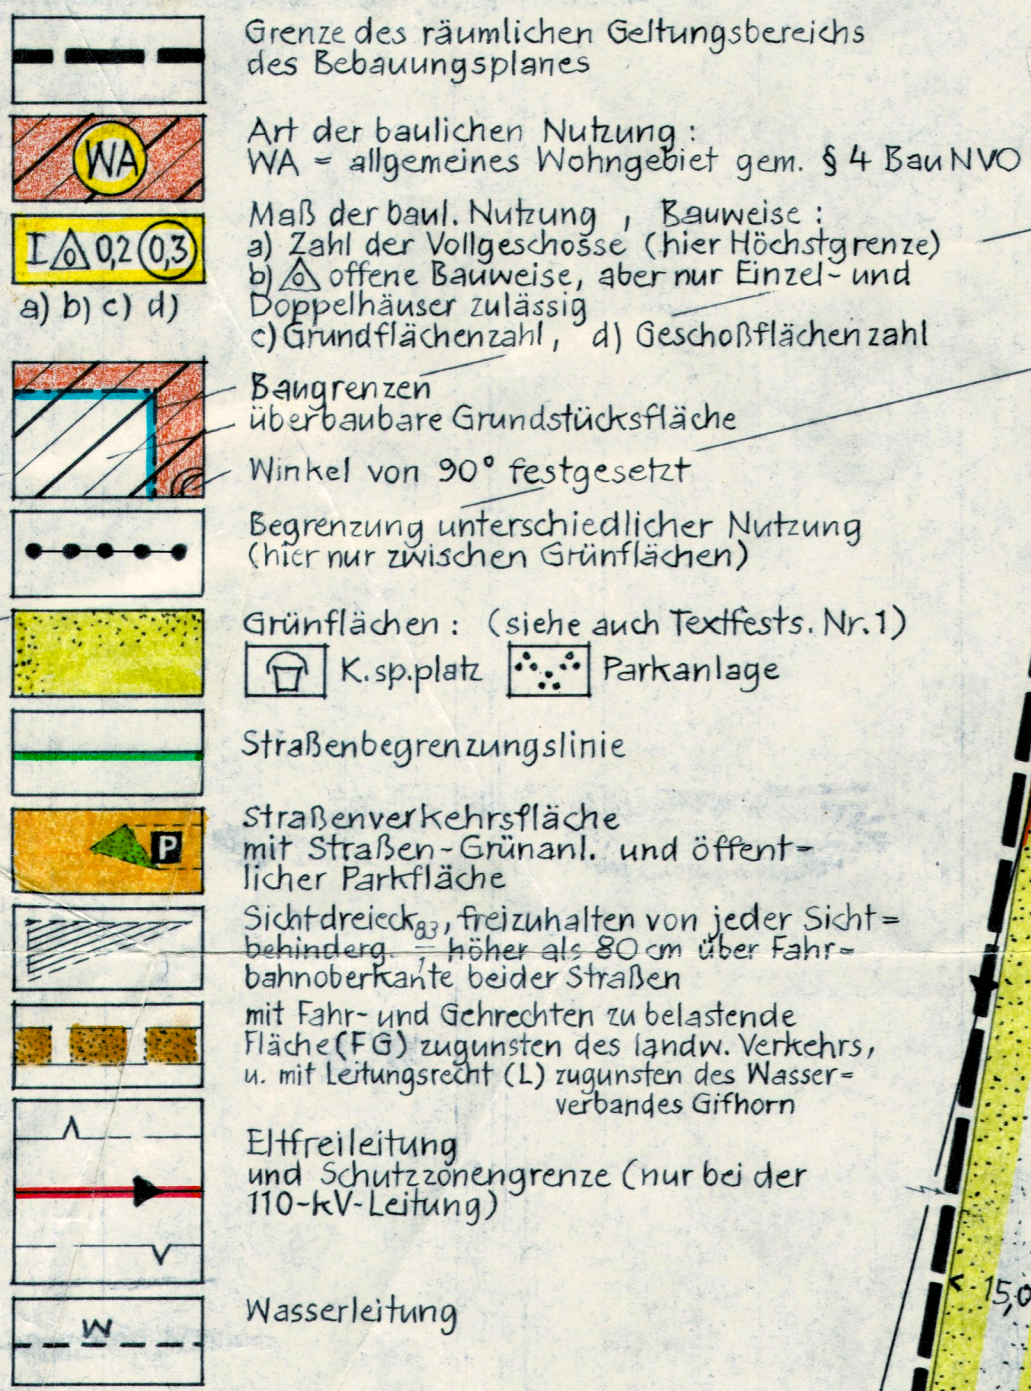 Grenze des räumlichen Geltungsbereichs
des Bebauungsplanes
WA
Art der baulichen Nutzung :
WA = allgemeines Wohngebiet gem. § 4 BauNVO
I 0,2 0,3
a) b) c) d)
Maß der baul. Nutzung , Bauweise :
a) Zahl der Vollgeschosse (hier Höchstgrenze)
b) offene Bauweise, aber nur Einzel- und
Doppelhäuser zulässig
c) Grundflächenzahl, d) Geschoßflächenzahl
Baugrenzen
überbaubare Grundstücksfläche
Winkel von 90° festgesetzt
Begrenzung unterschiedlicher Nutzung
(hier nur zwischen Grünflächen)
Grünflächen : (siehe auch Textfests. Nr. 1)
K.sp.platz Parkanlage
Straßenbegrenzungslinie
P
Straßenverkehrsfläche
mit Straßen-Grünanl. und öffent=
licher Parkfläche
Sichtdreieck, freizuhalten von jeder Sicht=
behinderg. = höher als 80 cm über Fahr=
bahnoberkante beider Straßen
mit Fahr- und Gehrechten zu belastende
Fläche (FG) zugunsten des landw. Verkehrs,
u. mit Leitungsrecht (L) zugunsten des Wasser=
verbandes Gifhorn
Eltfreileitung
und Schutzzonengrenze (nur bei der
110-kV-Leitung)
W
Wasserleitung
15,0